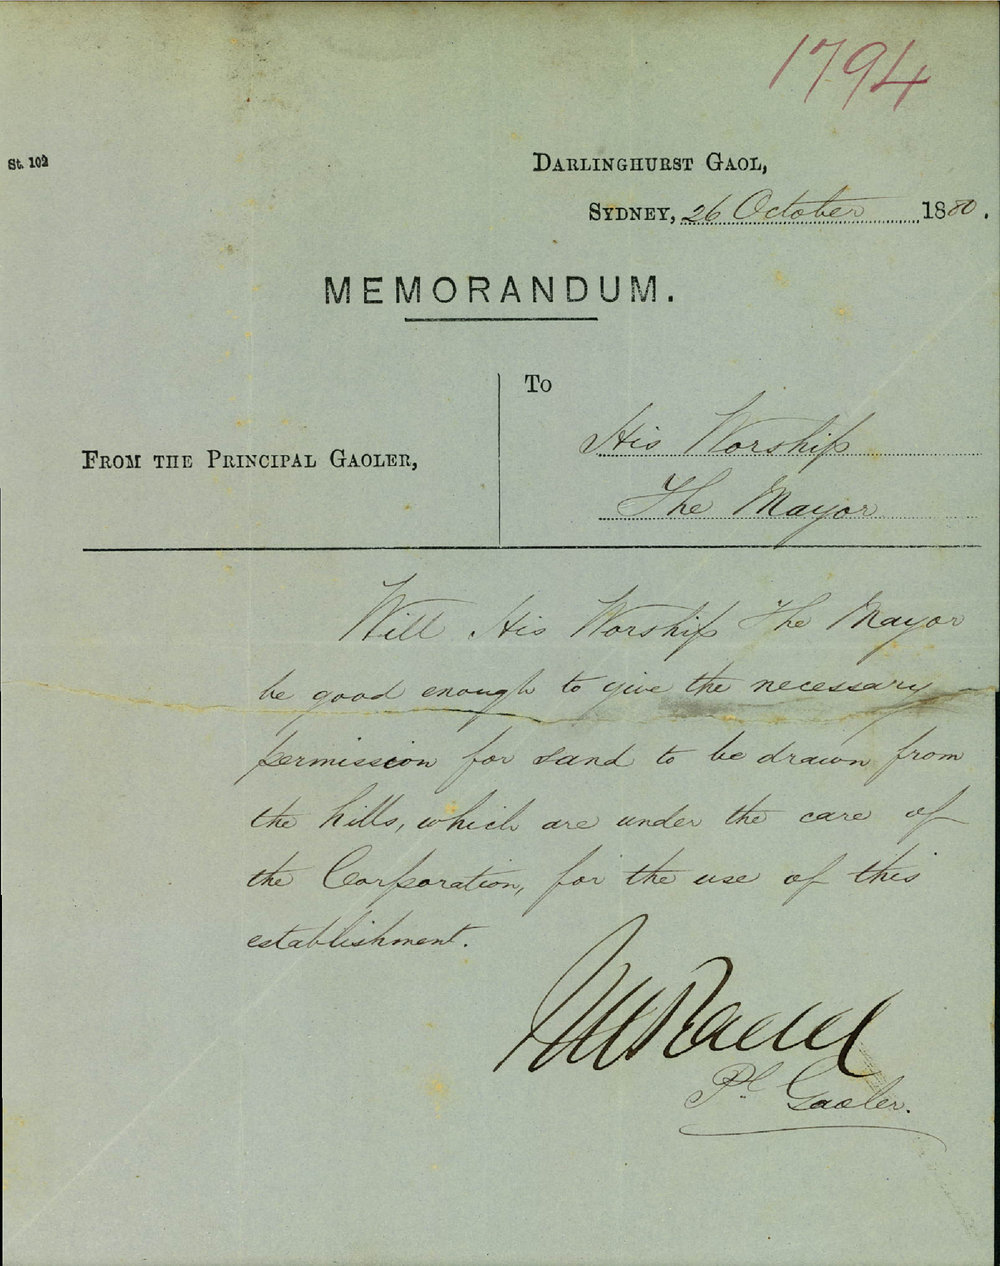 1794
St. 102
DARLINGHURST GAOL,
SYDNEY, 26 October 1880.
MEMORANDUM.
To
His Worship
FROM THE PRINCIPAL GAOLER,
The Mayor
Will His Worship The Mayor
be good enough to give the necessary
permission for sand to be drawn from
the hills, which are under the care of
the Corporation, for the use of this
establishment.
Pl. Gaoler.